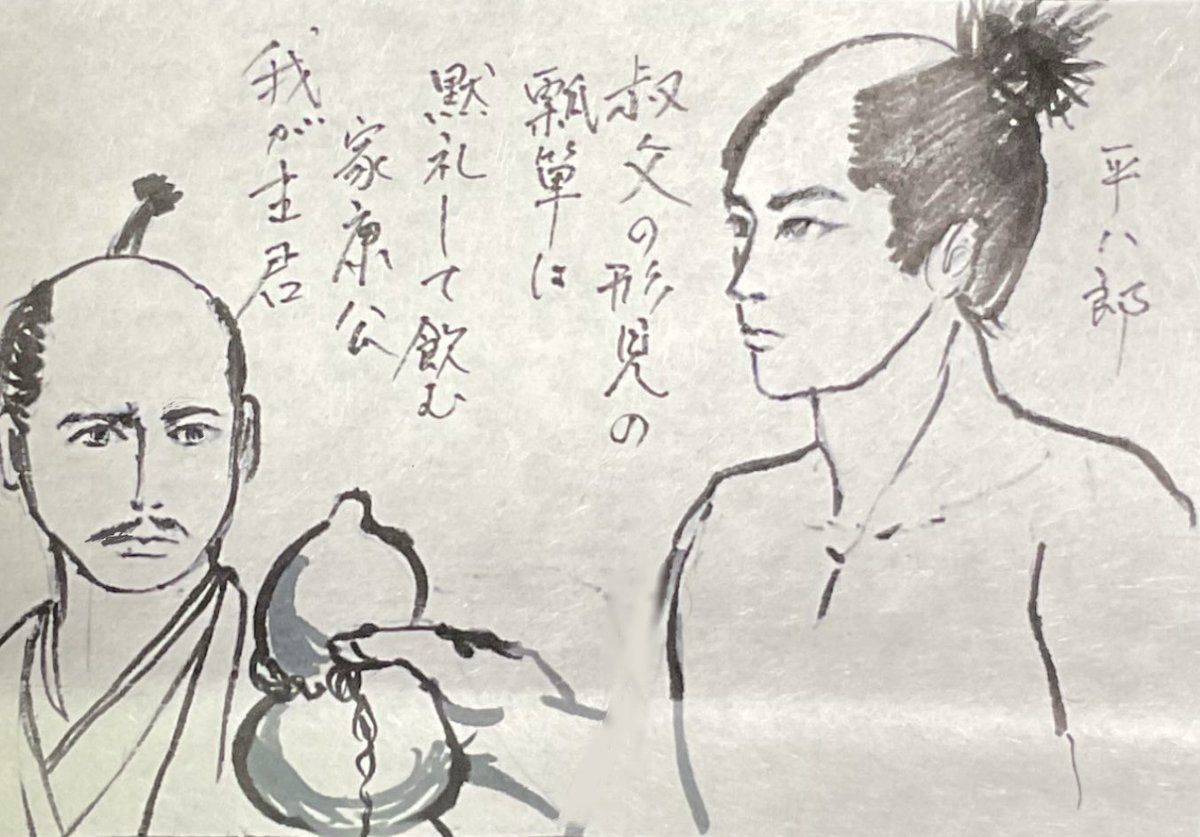 平八郎
叔父の形見の
瓢箪は
黙礼して飲む
家康公
我が主君